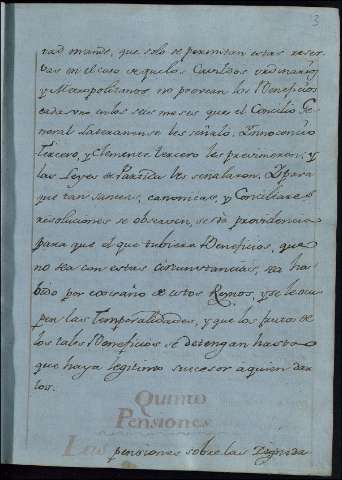 3
tad mande, que solo se permitan estas reser-
bas en el caso de que los Cavildos ordinarios
y Metropolitanos no provean los Beneficios
cada uno en los seis meses que el Concilio Ge-
neral Lateranense les señalo. Innocencio
tercero, y Clemente tercero les previnieron, y
las Leyes de Partida les señalaron. Y para
que tan sanctas, canonicas, y Conciliares
resoluciones se observen, se dà providencia
para que el que tubiera Beneficios, que
no sea con estas circunstancias, sea ha-
bido por extraño de estos Reynos, y se le ocu-
pen las Temporalidades, y que los frutos de
los tales Beneficios se detengan hasta
que haya legitimo succesor a quien dar-
los.
Quinto
Pensiones
Las pensiones sobre las Dignida-